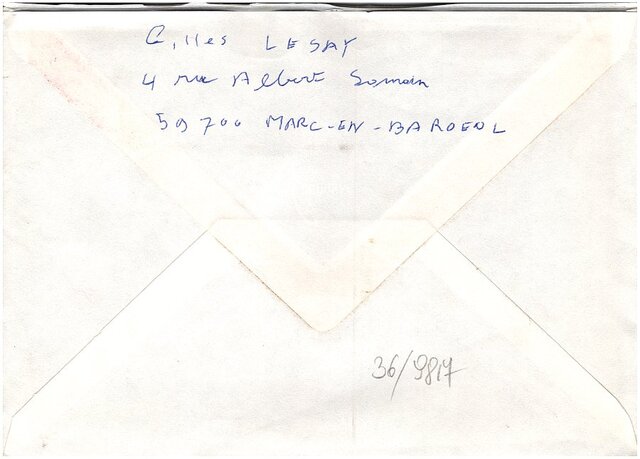 Gilles LESAY
4 rue Albert Somain
59700 MARC-EN-BAROENL
36/9817